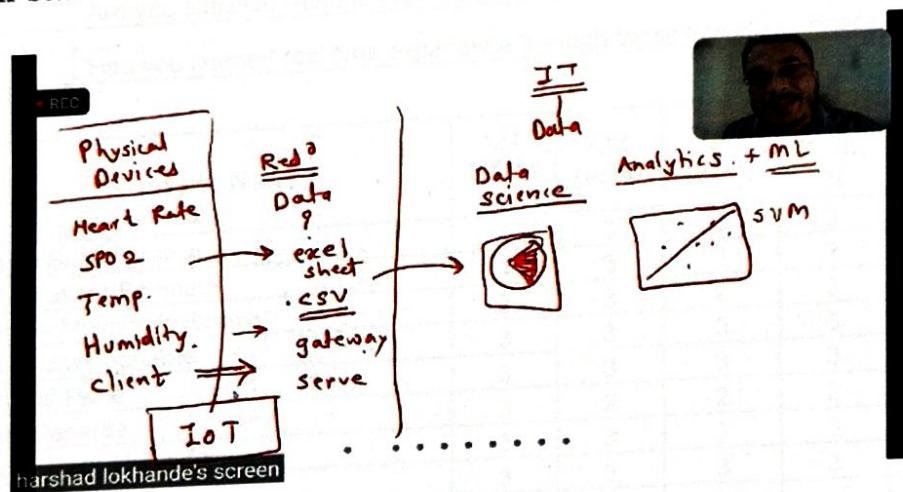 REC
Physical
Devices
Heart Rate
SPO2
Temp.
Humidity.
Client
IoT
Data
excel
sheet
.CSV
gateway
serve
IT
Data
Data
science
Analytics. + ML
SVM
harshad lokhande's screen